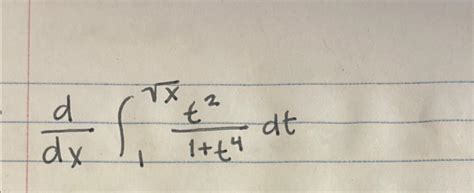 d/dx ∫₁^√x t²/(1+t⁴) dt